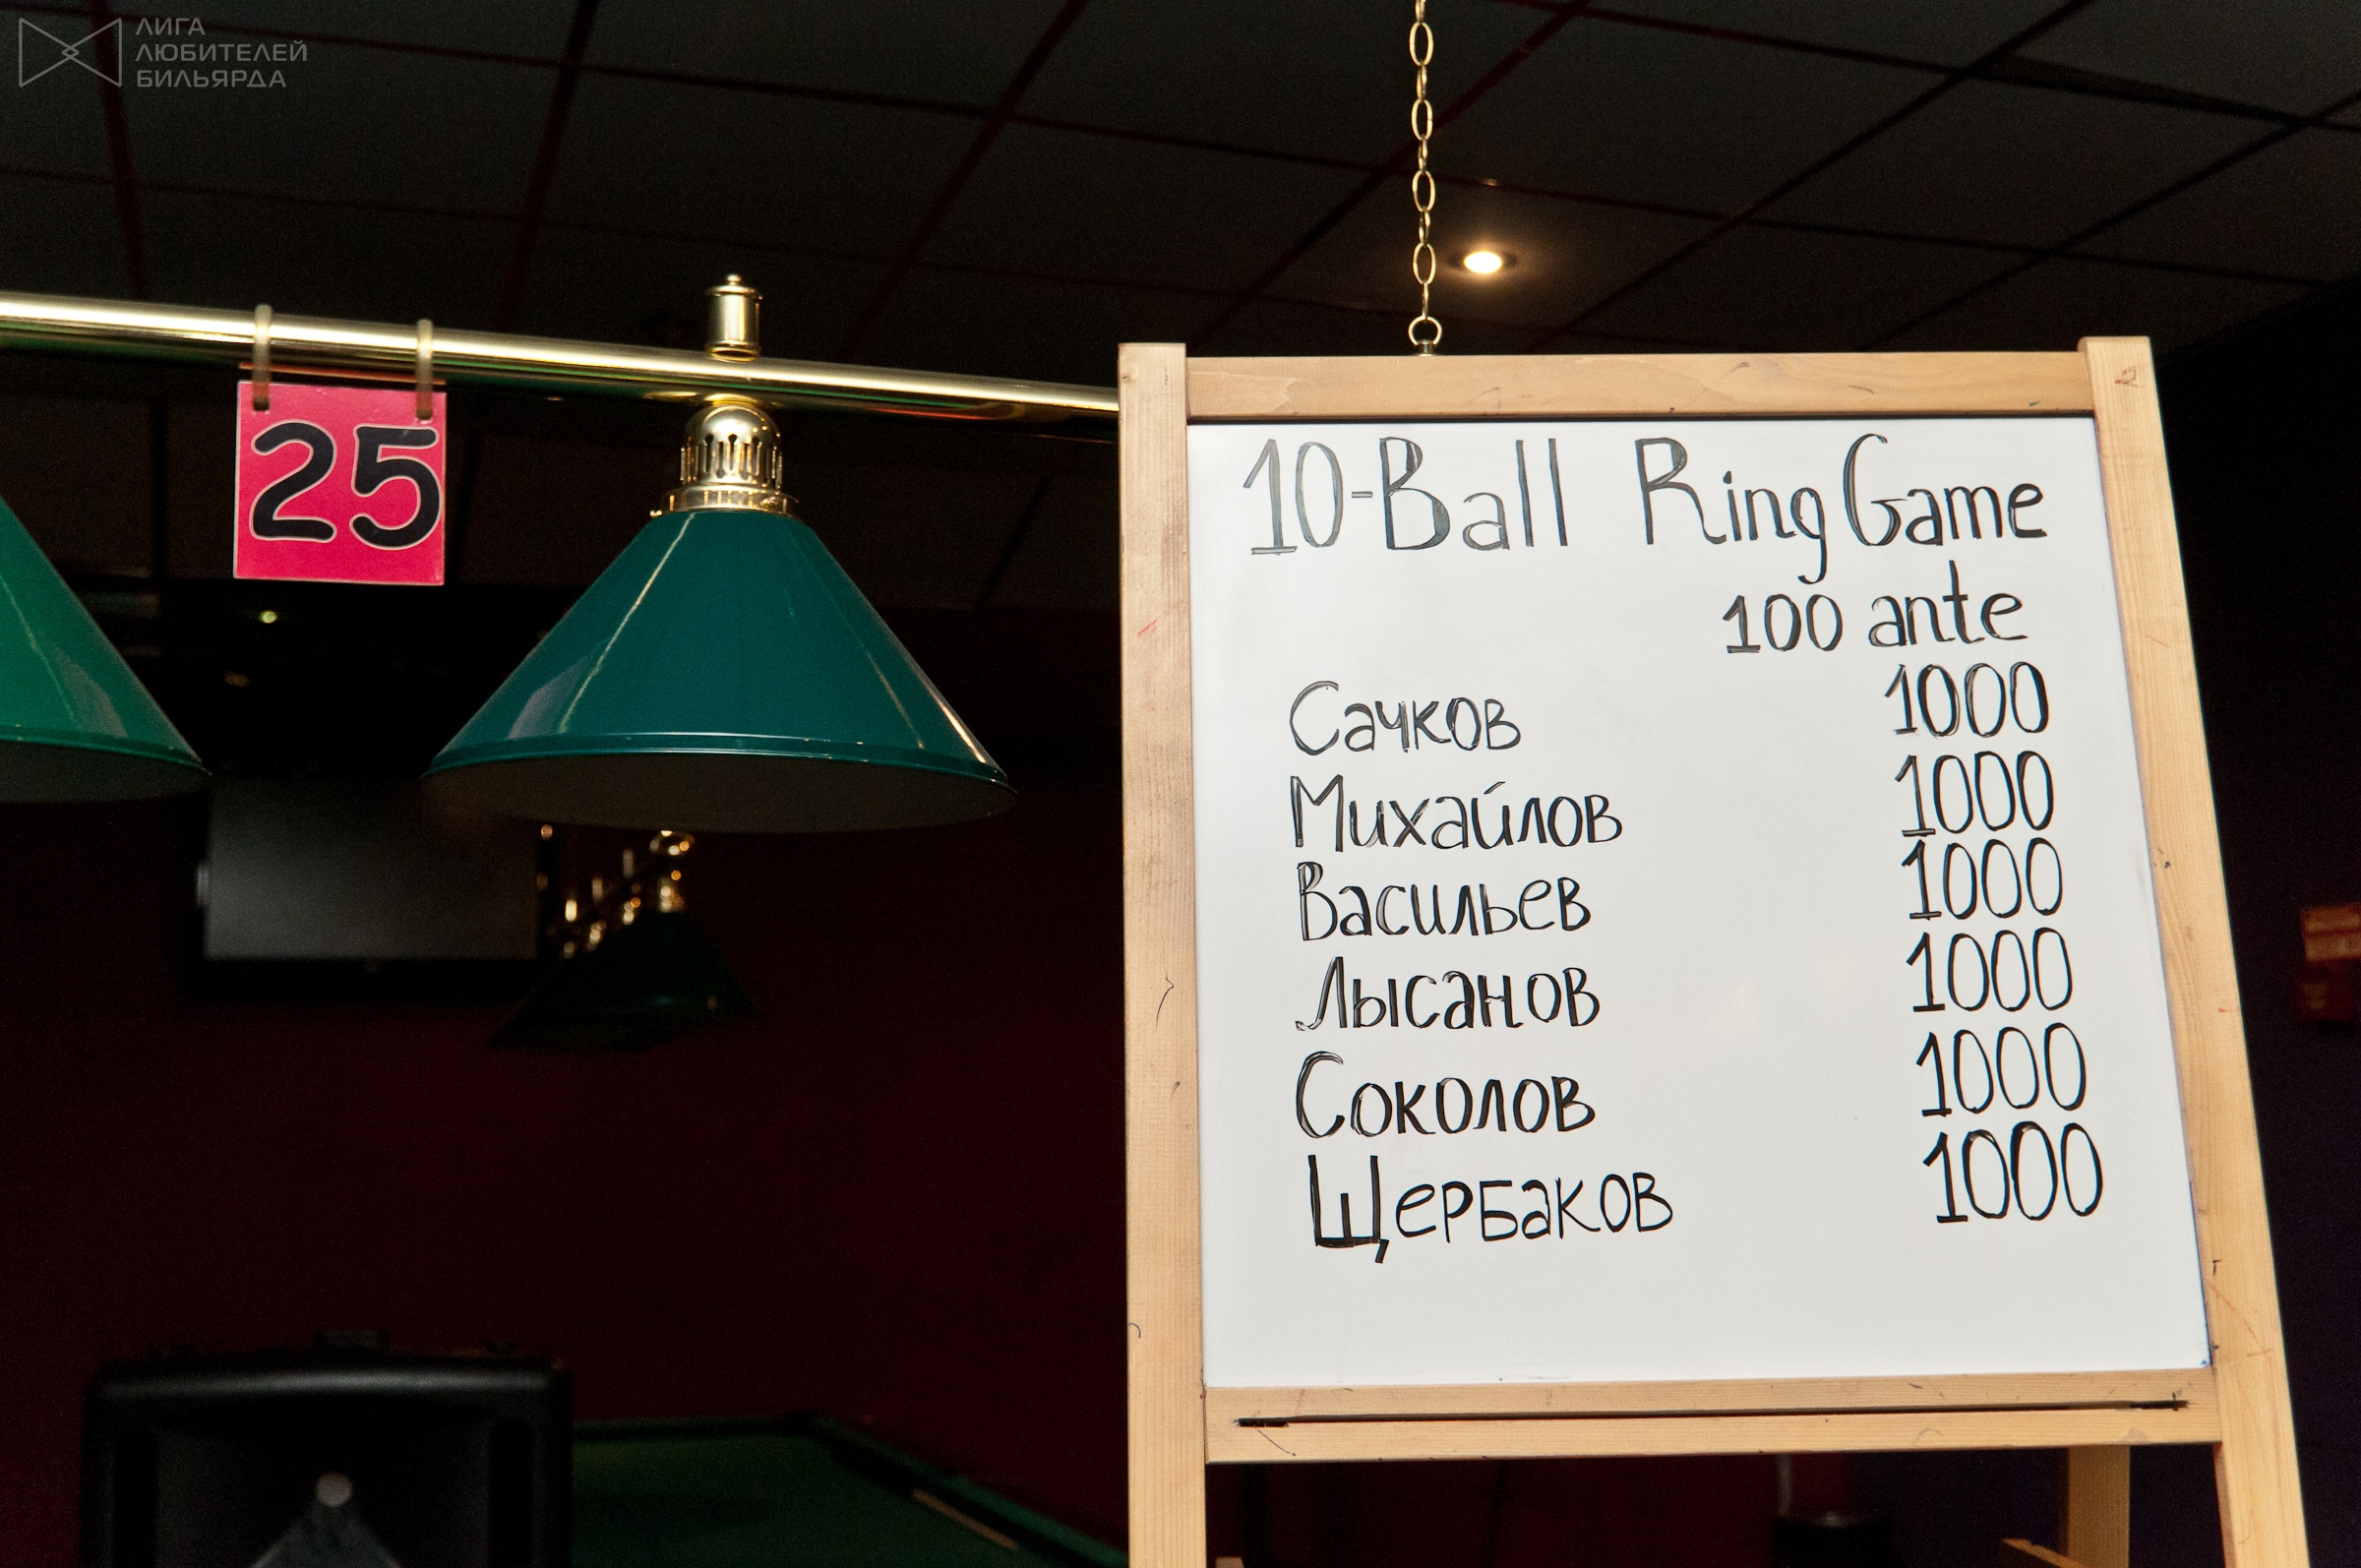 ЛИГА
ЛЮБИТЕЛЕЙ
БИЛЬЯРДА
25
10-Ball Ring Game
100 ante
Сачков 1000
Михайлов 1000
Васильев 1000
Лысанов 1000
Соколов 1000
Щербаков 1000